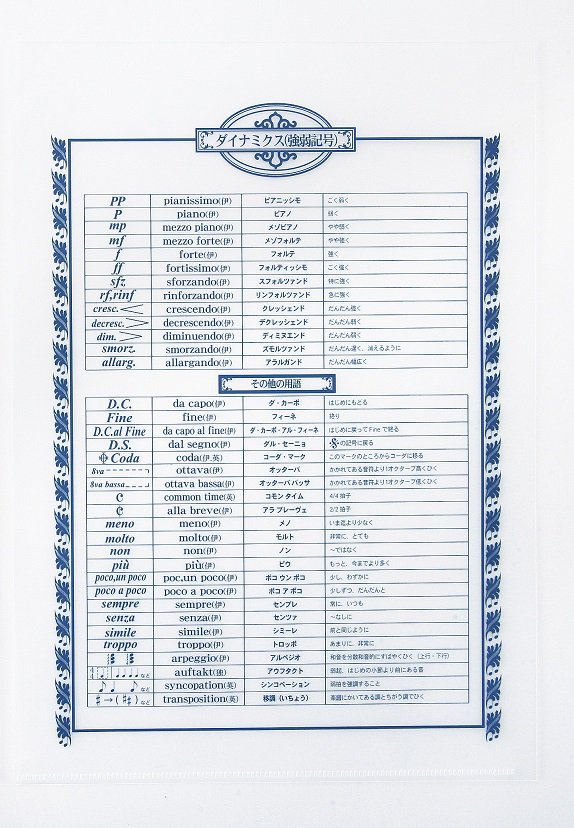 ダイナミクス(強弱記号)
PP pianissimo(伊) ピアニッシモ ごく弱く
P piano(伊) ピアノ 弱く
mp mezzo piano(伊) メゾピアノ やや弱く
mf mezzo forte(伊) メゾフォルテ やや強く
f forte(伊) フォルテ 強く
ff fortissimo(伊) フォルティッシモ ごく強く
sfz sforzando(伊) スフォルツァンド 特に強く
rf,rinf rinforzando(伊) リンフォルツァンド 急に強く
cresc. crescendo(伊) クレッシェンド だんだん強く
decresc. decrescendo(伊) デクレッシェンド だんだん弱く
dim. diminuendo(伊) ディミヌエンド だんだん弱く
smorz. smorzando(伊) ズモルツァンド だんだん遅く、消えるように
allarg. allargando(伊) アラルガンド だんだん幅広く
その他の用語
D.C. da capo(伊) ダ・カーポ はじめにもどる
Fine fine(伊) フィーネ 終り
D.C.al Fine da capo al fine(伊) ダ・カーポ・アル・フィーネ はじめに戻ってFineで終る
D.S. dal segno(伊) ダル・セーニョ の記号に戻る
Coda coda(伊.英) コーダ・マーク このマークのところからコーダに移る
8va ottava(伊) オッターバ かかれてある音符より1オクターブ高くひく
8va bassa ottava bassa(伊) オッターバ バッサ かかれてある音符より1オクターブ低くひく
common time(英) コモン タイム 4/4 拍子
alla breve(伊) アラ ブレーヴェ 2/2 拍子
meno meno(伊) メノ いままでより少なく
molto molto(伊) モルト 非常に、とても
non non(伊) ノン ～ではなく
più più(伊) ピウ もっと、今までより多く
poco,un poco poc,un poco(伊) ポコ ウン ポコ 少し、わずかに
poco a poco poco a poco(伊) ポコ ア ポコ 少しずつ、だんだんと
sempre sempre(伊) センプレ 常に、いつも
senza senza(伊) センツァ ～なしに
simile simile(伊) シミーレ 前と同じように
troppo troppo(伊) トロッポ あまりに、非常に
arpeggio(伊) アルペジオ 和音を分散和音的にすばやくひく（上行・下行）
など auftakt(独) アウフタクト 弱起、はじめの小節より前にある音
など syncopation(英) シンコペーション 弱拍を強調すること
など transposition(英) 移調（いちょう） 楽譜にかいてある調とちがう調でひく